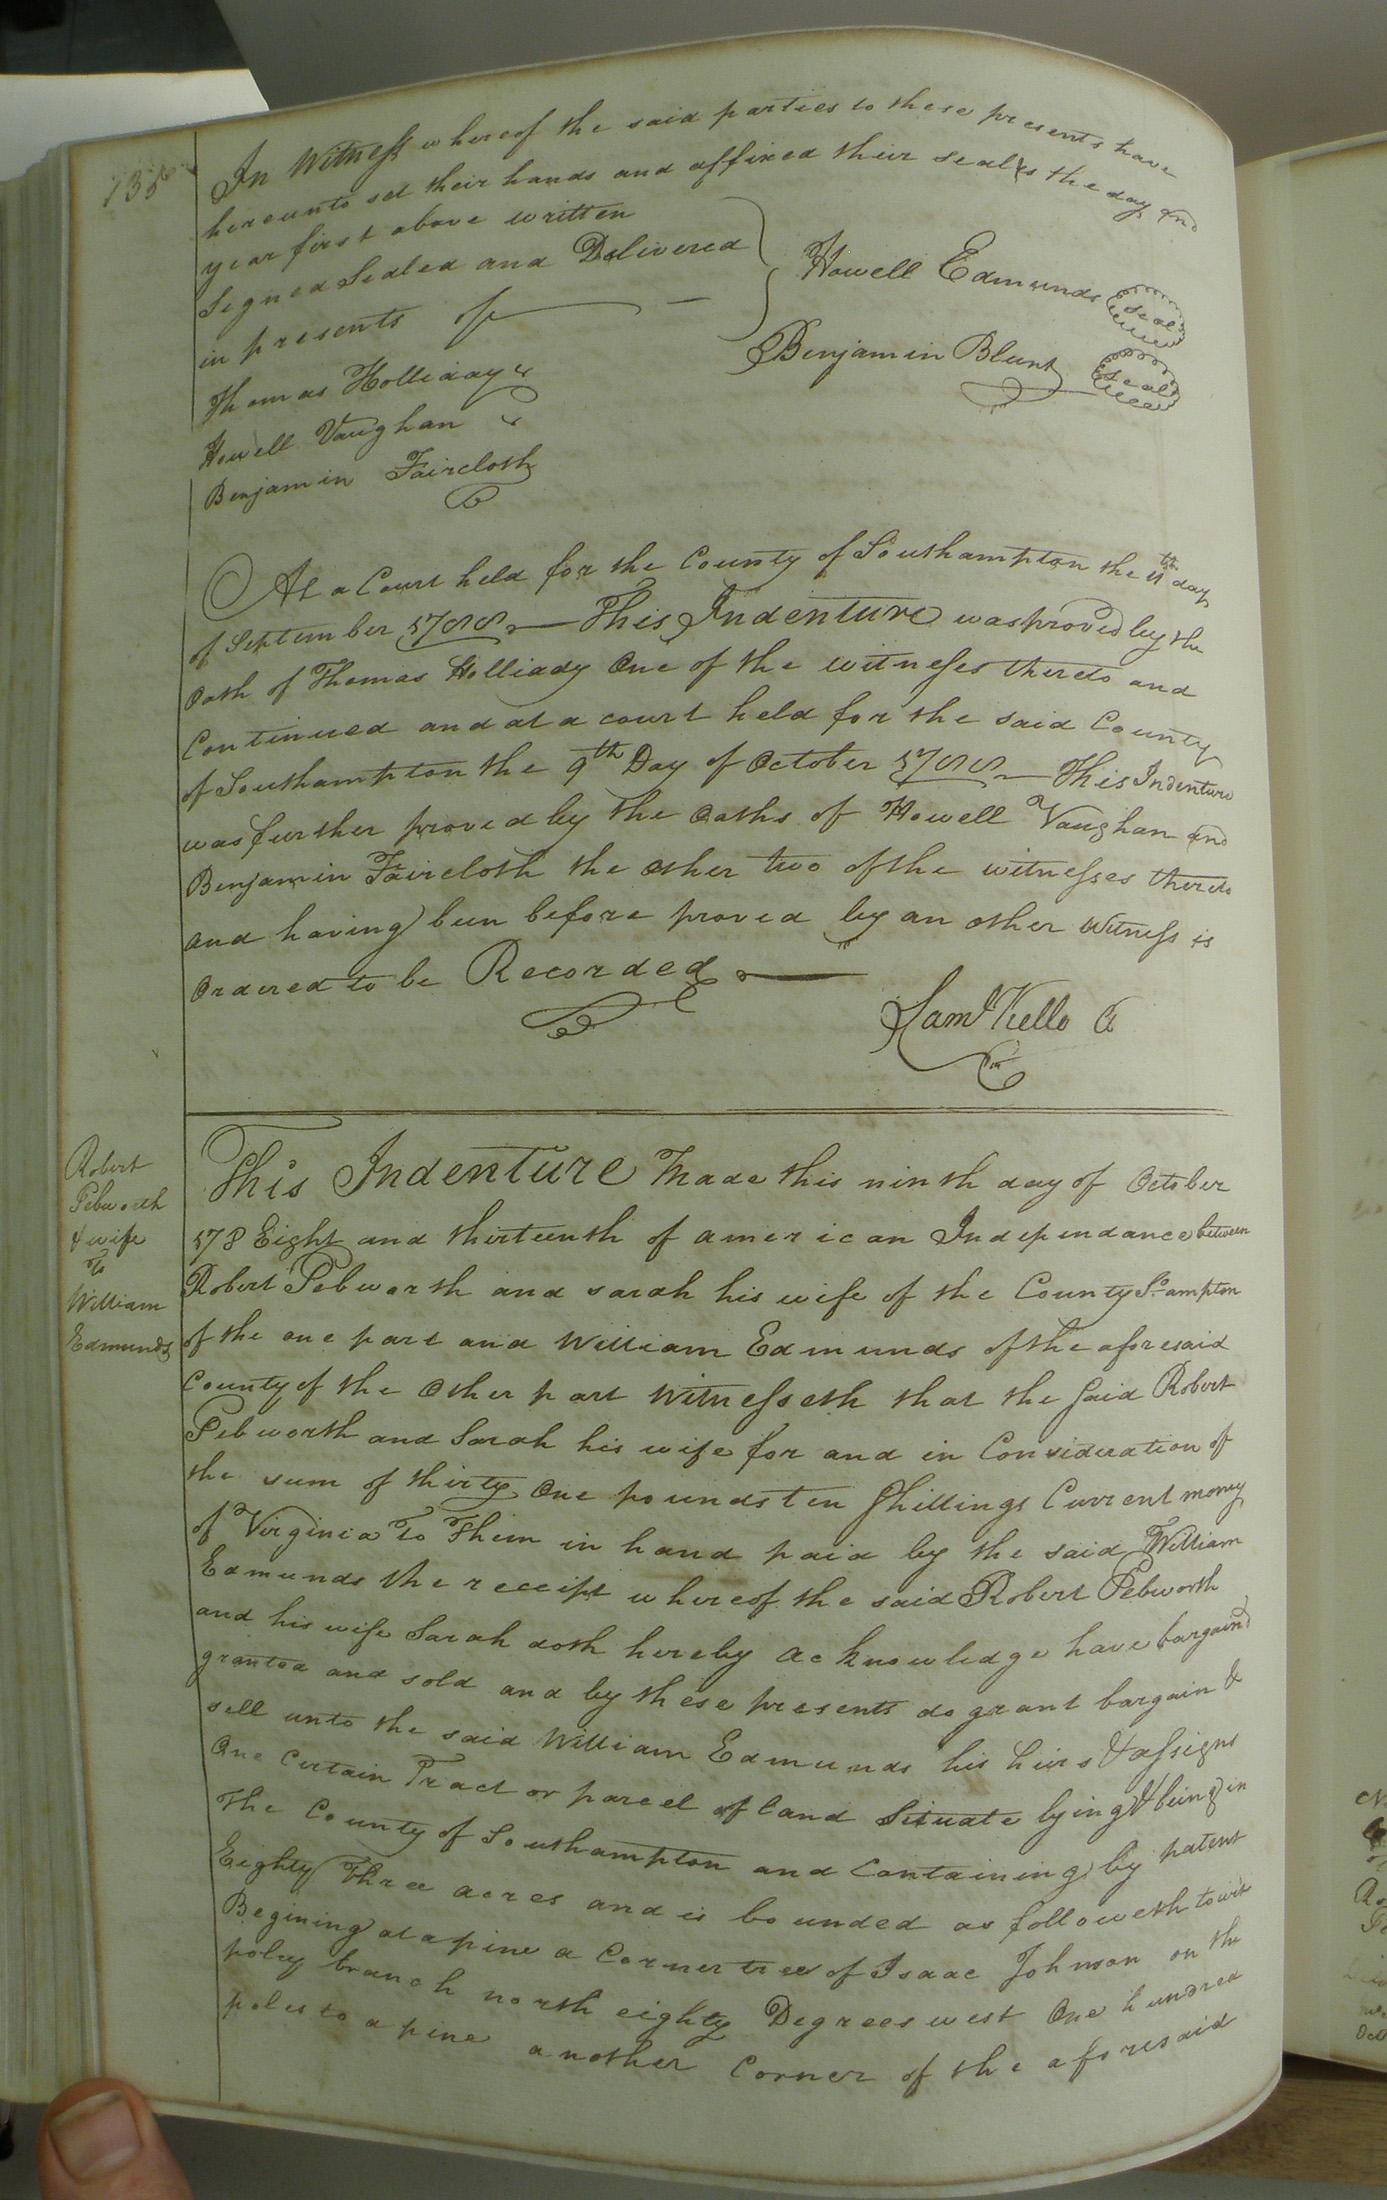 135
In Witness whereof the said parties to these presents have
hereunto set their hands and affixed their seals the day and
year first above written
Signed Sealed and Delivered
in presents of
Howell Edmunds seal
Benjamin Blunt seal
Thomas Holliday
Howell Vaughan
Benjamin Faircloth
At a Court held for the County of Southampton the 11th day
of September 1788 This Indenture was proved by the
Oath of Thomas Holliday One of the witnesses thereto and
Continued and at a court held for the said County
of Southampton the 9th Day of October 1788 This Indenture
was further proved by the Oaths of Howell Vaughan and
Benjamin Faircloth the other two of the witnesses thereto
and having been before proved by an other Witness is
Ordered to be Recorded
Saml Kello C
Robert
Pebworth
& wife
To
William
Edmunds
This Indenture Made this ninth day of October
178 Eight and thirteenth of american Independance between
Robert Pebworth and sarah his wife of the County So.ampton
of the one part and William Edmunds of the aforesaid
County of the Other part Witnesseth that the said Robert
Pebworth and Sarah his wife for and in Consideration of
the sum of thirty One pounds ten shillings Current money
of Virginia To Them in hand paid by the said William
Edmunds the receipt whereof the said Robert Pebworth
and his wife Sarah doth hereby acknowledge have bargaind
granted and sold and by these presents do grant bargain &
sell unto the said William Edmunds his heirs & assigns
One Certain Tract or parcel of land Situate lying & being in
The County of Southampton and Containing by patent
Eighty Three acres and is bounded as followeth towit
Begining at a pine a Corner tree of Isaac Johnson on the
poley branch north eighty Degrees west One hundred
poles to a pine another Corner of the aforesaid